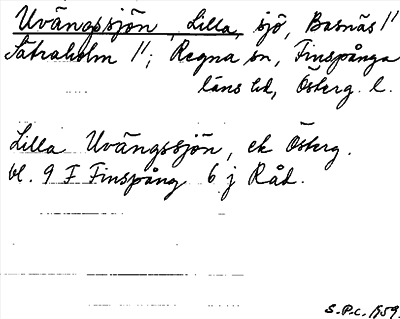 Uvängssjön, Lilla, sjö, Basnäs 1/1
Sätraholm 1/1; Regna sn, Finspånga
läns hd, Österg. l.
Lilla Uvängssjön, ek Österg.
bl. 9 F Finspång 6 j Råd.
S.P.C. 1959.